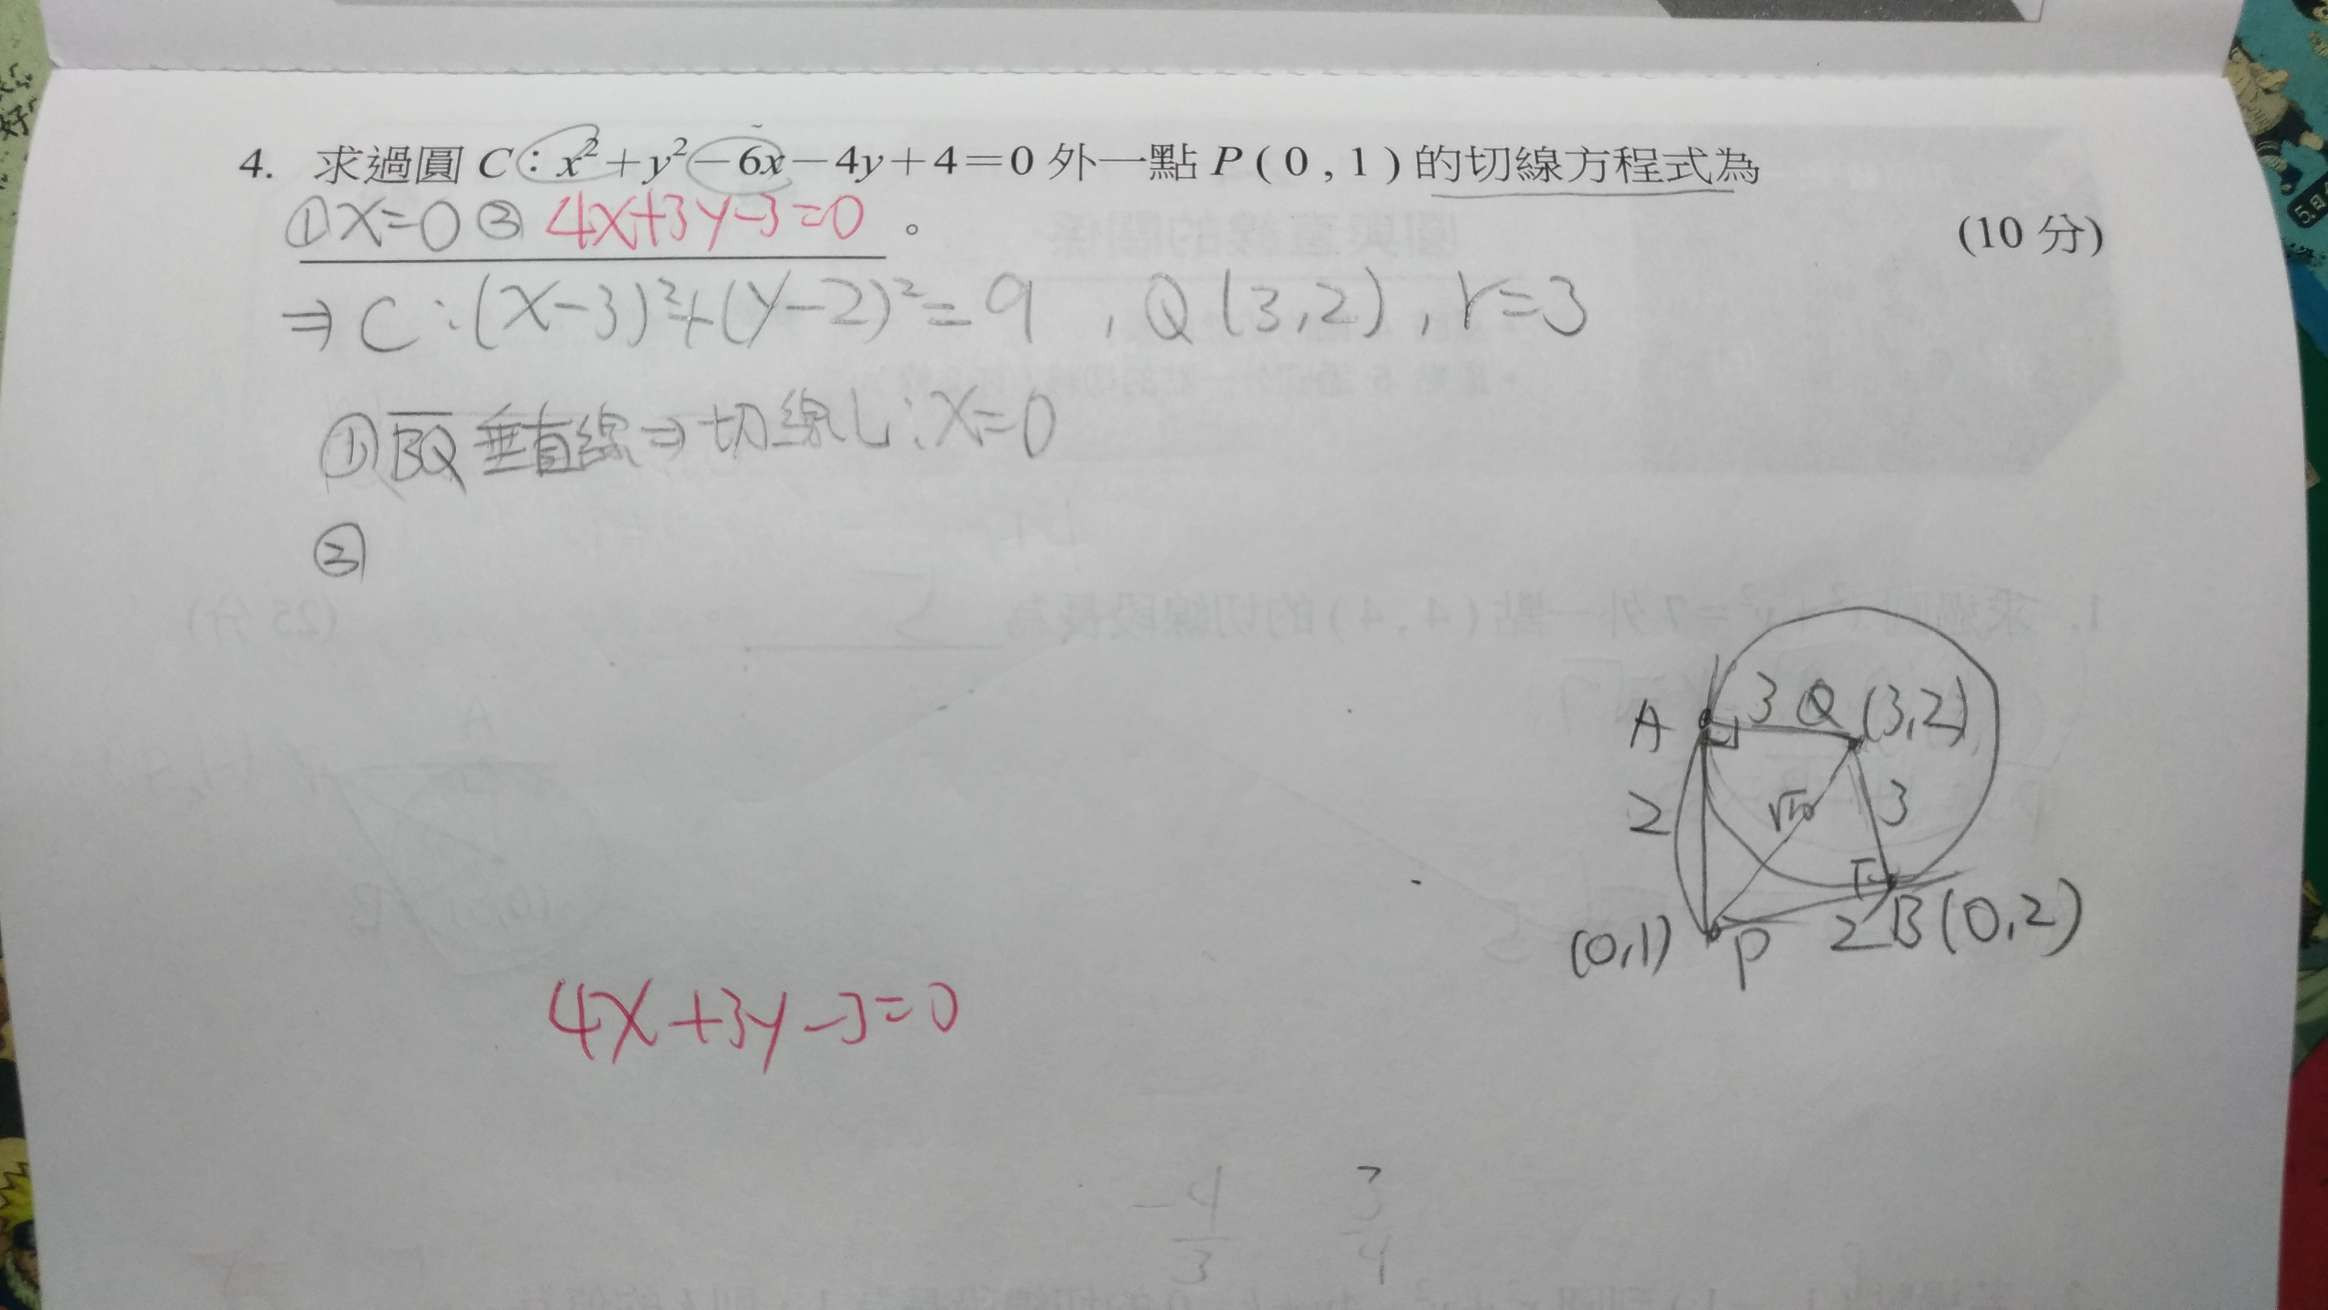 4. 求過圓 C：x²+y²−6x−4y+4=0 外一點 P(0,1) 的切線方程式為
①x=0 ② 4x+3y-3=0 。 (10 分)
⇒ C:(x-3)²+(y-2)²=9 , Q(3,2), r=3
① BQ 垂直線⇒切線L:x=0
②
A 3 Q (3,2)
2 √10 3
(0,1) P 2 B(0,2)
4x+3y-3=0
-4/3 3/4